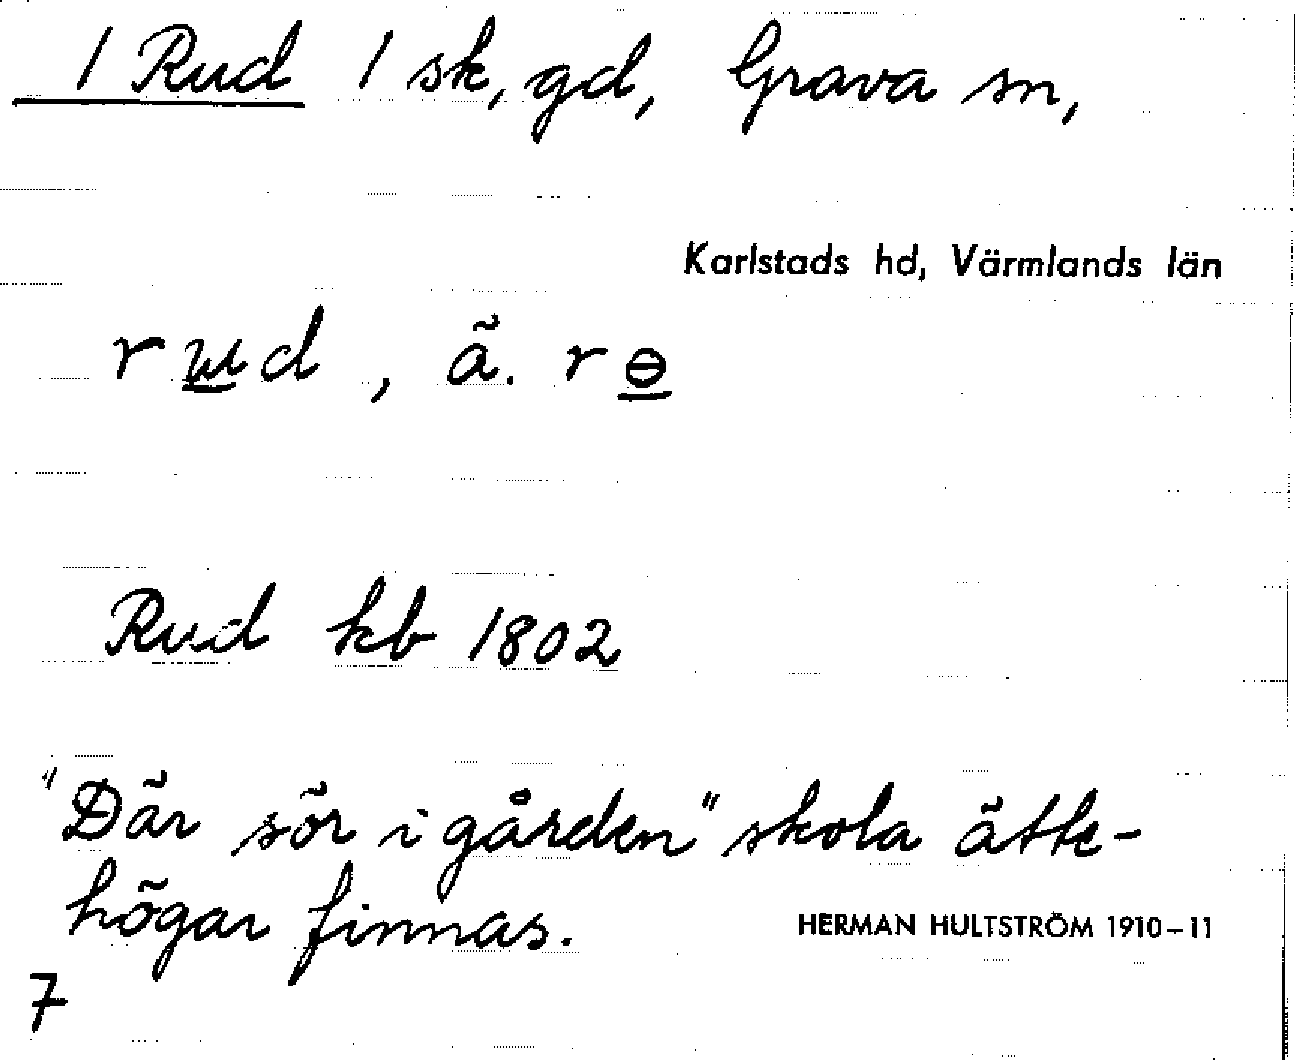 1 Rud 1 sk, gd, Grava sn,
Karlstads hd, Värmlands län
rɯd, ä. rɵ
Rud kb 1802
"Där sör i gården" skola ätte-
högar finnas.
HERMAN HULTSTRÖM 1910–11
7